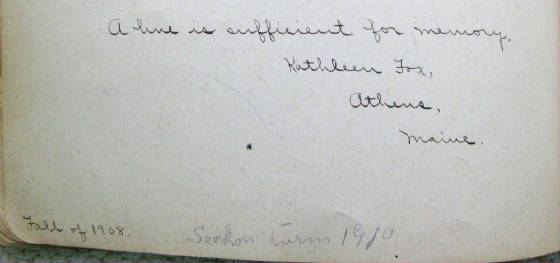 A line is sufficient for memory.
Kathleen Fox,
Athens,
Maine.
Fall of 1908.
Seckon turm 1910